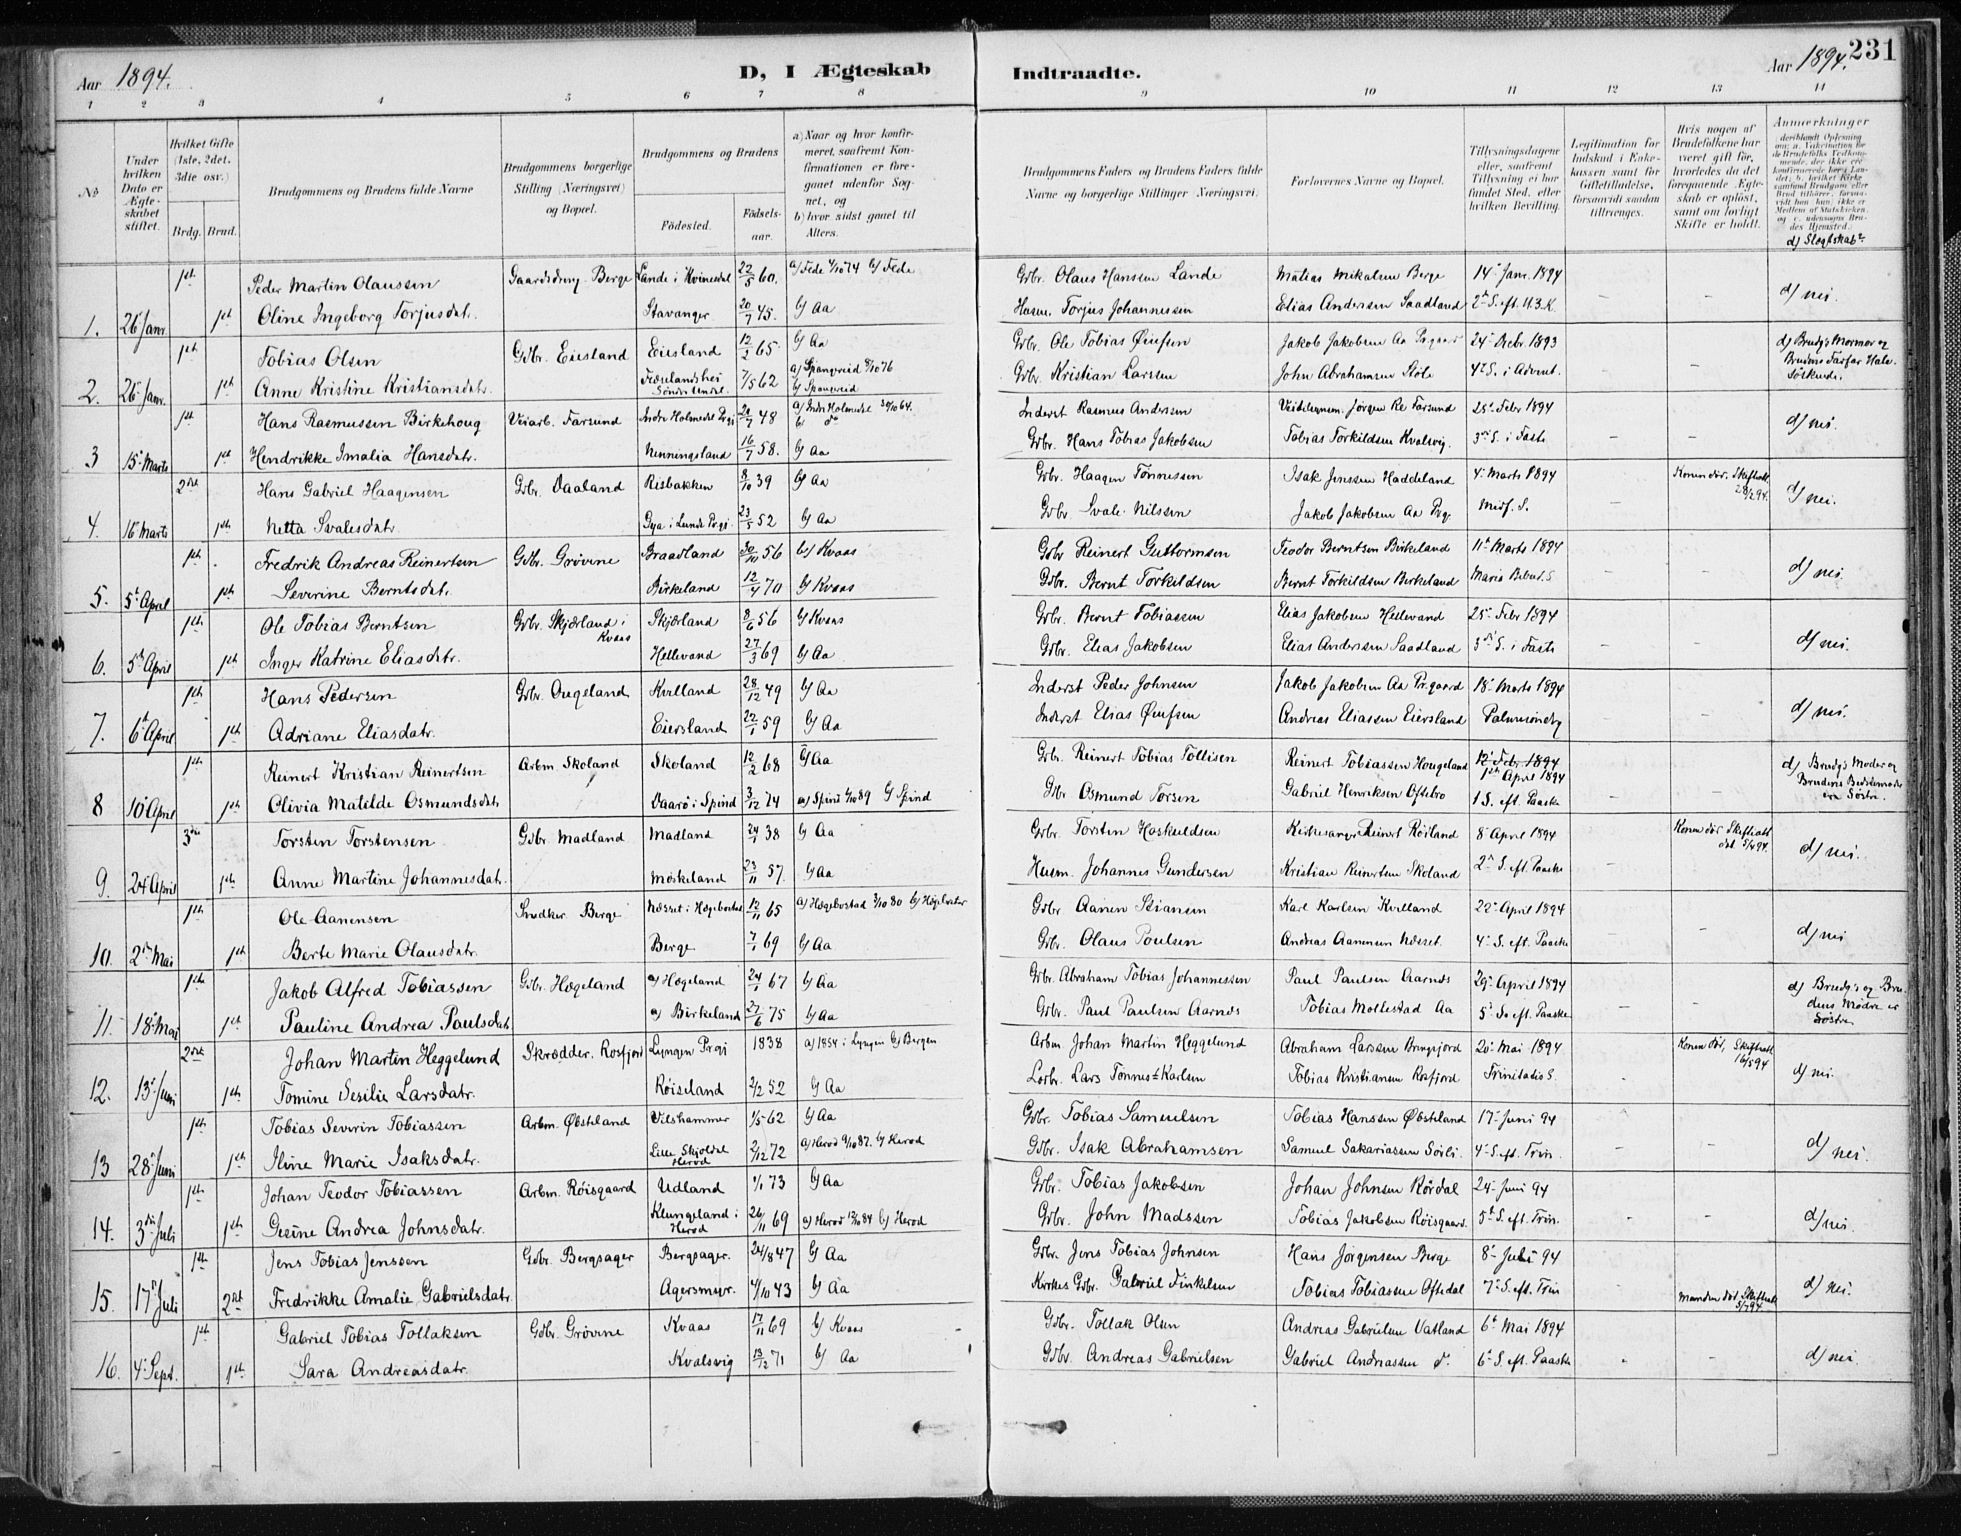 Aar 1894.
D, I Ægteskab
Indtraadte.
Aar 1894.
231
1 2 3 4 5 6 7 8 9 10 11 12 13 14
No
Under hvilken Dato er Ægteskabet stiftet.
Hvilket Gifte (1ste, 2det, 3die osv.)
Brdg. Brud.
Brudgommens og Brudens fulde Navne
Brudgommens borgerlige Stilling (Næringsvei) og Bopæl.
Brudgommens og Brudens
Fødested.
Fødselsaar.
a) Naar og hvor konfirmeret, saafremt Konfirmationen er foregaaet udenfor Sognet, og
b) hvor sidst gaaet til Alters.
Brudgommens Faders og Brudens Faders fulde Navne og borgerlige Stillinger (Næringsvei).
Forlovernes Navne og Bopæl.
Tillysningsdagene eller, saafremt Tillysning ei har fundet Sted, efter hvilken Bevilling.
Legitimation for Indskud i Enkekassen samt for Giftetilladelse, forsaavidt saadan tiltrænges.
Hvis nogen af Brudefolkene har været gift før, hvorledes da det foregaaende Ægteskab er opløst, samt om lovligt Skifte er holdt.
Anmærkninger
d) Slegtskab?
1ste Peder Martin Olaussen Gaardsdreng Berge Lande i Kvinesdal 22/5 60. a) Fede 4/10 74 b) Fede Gbr. Olaus Hansen Lande Matias Mikalsen Berge 14 Janr. 1894
1. 26 Janr. 1ste Oline Ingeborg Torjusdatr. Stavanger 20/7 45. b) Aa Husm. Torjus Johannessen Elias Andersen Saadland 2 S. eft. H.3.K. - - d) nei.
1ste Tobias Olsen Gdbr. Eiesland Eiesland 12/2 65 b) Aa Gdbr. Ole Tobias Øiufsen Jakob Jakobsen Aa Prgaard 24 Decbr 1893 d) Brudg's Mormor og
2. 26 Janr. 1ste Anne Kristine Kristiansdatr. Søndre Undal. 7/5 62 a) Spangereid 8/10 76 b) Spangereid Gdbr. Kristian Larsen John Abrahamsen Støle 4 S. i Advent. Brudens Farfar Halvsøskende.
1ste Hans Rasmussen Birkehoug Veiarb. Farsund Indre Holmedal Prgj 29/7 48 a) Indre Holmedal 30/10 64. b) do Inderst Rasmus Andersen Jørgen Re Farsund 25 Febr 1894
3 15 Marts 1ste Hendrikke Imalia Hansdatr. Nenningsland 16/7 58. b) Aa Gbr. Hans Tobias Jakobsen Tobias Torkildsen Kvalsvig. 3 S. i Faste - - d) nei.
2det Hans Gabriel Haagensen Gbr. Vaaland Risbakken 8/10 39 b) Aa Gbr. Haagen Tønnessen Isak Jenssen Haddeland 4 Marts 1894 Konen død. Skifteatt. 28/2 94.
4. 16 Marts 1ste Netta Svalesdatr Gya i Lunde Prgj. 23/5 52 b) Aa Gdbr Svale Nilssen Jakob Jakobsen Aa Prg. Midf. S. - d) nei.
1ste Fredrik Andreas Reinertsen Gdbr. Grøvene Braadland 30/10 56 b) Kvaas Gdbr Reinert Guttormsen Teodor Berntsen Birkeland 11 Marts 1894
5. 5 April 1ste Severine Berntsdatr. Birkeland 12/4 70 b) Kvaas Gdbr. Bernt Torkildsen Bernt Torkildsen Birkeland Maria Bebud. S - - d) nei.
1ste Ole Tobias Berntsen Gdbr. Skjærland i Kvaas Skjærland 8/6 56 b) Kvaas Gdbr. Bernt Tobiassen Elias Jakobsen Hellevand 25 Febr 1894
6. 5 April 1ste Inger Katrine Eliasdatr. Hellevand 27/3 69 b) Aa Gdbr. Elias Jakobsen Elias Andersen Saadland 3 S. i Faste - - d) nei.
1ste Hans Pedersen Gdbr. Ougeland Kvelland 28/12 49 b) Aa Inderst Peder Johnsen Jakob Jakobsen Aa Prgaard 18 Marts 1894
7. 6 April 1ste Adriane Eliasdatr. Eiersland 22/1 59 b) Aa Inderst Elias Øiufsen Andreas Eliassen Eiersland Palmesøndag - - d) nei.
1ste Reinert Kristian Reinertsen Arbm. Skoland Skoland 12/2 68 b) Aa Gbr. Reinert Tobias Tollisen Reinert Tobiassen Hougeland 12 Febr. 1894 1ste April 1894 d) Brudg's Moder og
8 10 April 1ste Olivia Matilde Osmundsdatr Vaarø i Spind 3/12 74 a) Spind 4/10 89 b) Spind Gbr Osmund Torsen Gabriel Henriksen Oftebro 1 S. eft. Paaske Brudens Bedstemoder era Søstre.
3die Torsten Torstensen Gdbr. Madland Madland 24/1 38 b) Aa Gdbr. Torsten Haskuldsen Kirkesanger Reinert Røiland 8 April 1894 Konen død. Skifteatt. dat. 5/4 94.
9. 24 April 1ste Anne Martine Johannesdatr. Møskeland 23/11 57. b) Aa Husm. Johannes Gundersen Kristian Reinertsen Skoland 2 S. eft. Paaske - d) nei.
1ste Ole Aanensen Snedker Berge Næsset i Hægebostad 12/11 65 a) Hægebostad 3/10 80 Gdbr Aanen Stiansen Karl Karlsen Kvelland 22 April 1894
10. 2 Mai 1ste Berte Marie Olausdatr. Berge 7/1 69 b) Aa Gdbr. Olaus Poulsen Andreas Aanensen Næsset. 4 S. eft. Paaske - - d) nei
1ste Jakob Alfred Tobiassen Gdbr. Hægeland a) Hægeland 24/1 67 b) Aa Gdbr. Abraham Tobias Johannessen Paul Paulsen Aarnes 29 April 1894 d) Brudg's og Bru-
11. 18 Mai 1ste Pauline Andrea Paulsdatr a) Birkeland 27/6 75 b) Aa Gdbr. Paul Paulsen Aarnes Tobias Mollestad Aa 5 do eft. Paaske - - dens Mødre er Søstre
2det Johan Martin Heggelund Skrædder. Rosfjord Lyngen Prgj 1838 a) 1854 i Lyngen b) Bergen Arbm Johan Martin Heggelund Abraham Larssen Bringsjord 20 Mai 1894 Konen død, Skifteatt 16/5 94
12. 13 Juni 1ste Tomine Sesilie Larsdatr. Røiseland 2/2 52 b) Aa Lars Tønnes Karlsen Tobias Kristiansen Rosfjord Trinitatis S. - d) nei.
1ste Tobias Severin Tobiassen Arbm. Øbsteland Vilshammer 1/5 62 b) Aa Gdbr. Tobias Samuelsen Tobias Hanssen Øbsteland 17 Juni 94
13 28 Juni 1ste Iline Marie Isaksdatr. Lille Skjoldal Herød 2/12 72 a) Herod 9/10 87. b) Herod Gdbr. Isak Abrahamsen Samuel Sakariassen Sørli. 4 S. eft. Trin. - d) nei.
1ste Johan Teodor Tobiassen Arbm. Røisgaard Udland 1/1 73 b) Aa Gdbr. Tobias Jakobsen Johan Johnsen Rørdal 24 Juni 94
14. 3die Juli 1ste Gesine Andrea Johnsdatr. Klungeland i Herod 26/11 69 a) Herod 12/10 84 b) Herod Gdbr. John Madssen Tobias Jakobsen Røisgaard. 5 S. eft. Trin. - - d) nei.
1ste Jens Tobias Jenssen Gdbr. Bergsager Bergsager. 24/8 47 b) Aa Gdbr. Jens Tobias Johnsen Hans Jørgensen Berge 8 Juli 94
15. 17 Juli 2det Fredrikke Amalie Gabrielsdatr. Agersmyr. 4/10 43 b) Aa Gdbr. Gabriel Finkelsen Tobias Tobiassen Oftedal 7 S. eft. Trin Manden død, Skifteatt 5/7 94. d) nei.
1ste Gabriel Tobias Tollaksen Gdbr. Grøvene Kvaas 17/11 69 b) Kvaas Gdbr. Tollak Olsen Andreas Gabrielsen Vatland 6 Mai 1894
16. 4 Sept. 1ste Sara Andreasdatr. Kvalsvig 13/12 71 b) Aa Gdbr. Andreas Gabrielsen Gabriel Andreassen do. 6 S. eft. Paaske - - d) nei.